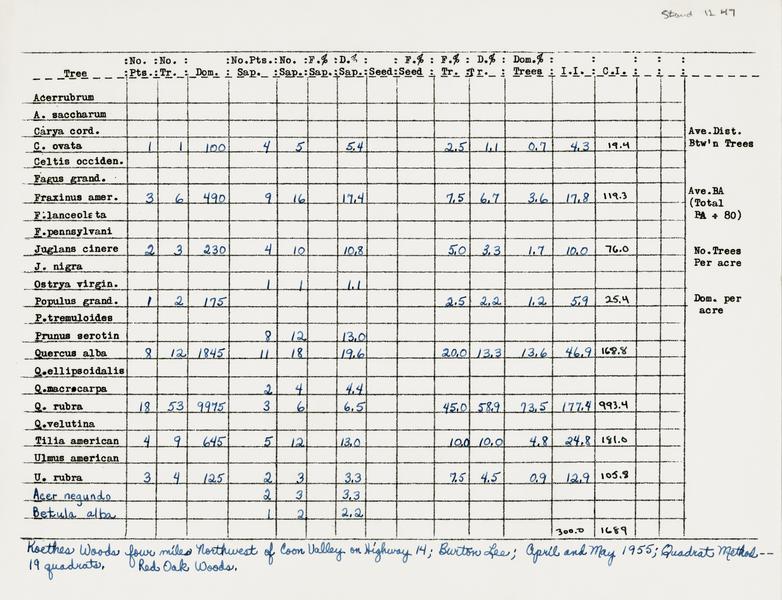 Stand 1247
:No. :No. : :No.Pts.:No. :F.% :D.% : : F.% : F.% :D.% :Dom.% : : : : :
Tree :Pts.:Tr. : Dom. : Sap. :Sap.:Sap.:Sap.:Seed:Seed : Tr. :Tr. : Trees : I.I. : C.I. : : :
Acerrubrum
A. saccharum
Carya cord.
C. ovata 1 1 100 4 5 5.4 2.5 1.1 0.7 4.3 19.4
Celtis occiden.
Fagus grand.
Fraxinus amer. 3 6 490 9 16 17.4 7.5 6.7 3.6 17.8 119.3
F.lanceolata
F.pennsylvani
Juglans cinere 2 3 230 4 10 10.8 5.0 3.3 1.7 10.0 76.0
J. nigra
Ostrya virgin. 1 1 1.1
Populus grand. 1 2 175 2.5 2.2 1.2 5.9 25.4
P.tremuloides
Prunus serotin 8 12 13.0
Quercus alba 8 12 1845 11 18 19.6 20.0 13.3 13.6 46.9 168.8
Q.ellipsoidalis
Q.macrocarpa 2 4 4.4
Q. rubra 18 53 9975 3 6 6.5 45.0 58.9 73.5 177.4 993.4
Q.velutina
Tilia american 4 9 645 5 12 13.0 10.0 10.0 4.8 24.8 181.0
Ulmus american
U. rubra 3 4 125 2 3 3.3 7.5 4.5 0.9 12.9 105.8
Acer negundo 2 3 3.3
Betula alba 1 2 2.2
300.0 1689
Ave.Dist.
Btw'n Trees
Ave.BA
(Total
BA ÷ 80)
No.Trees
Per acre
Dom. per
acre
Koethes Woods four miles Northwest of Coon Valley on Highway 14; Burton Lee; April and May 1955; Quadrat Method--
19 quadrats. Red Oak Woods.